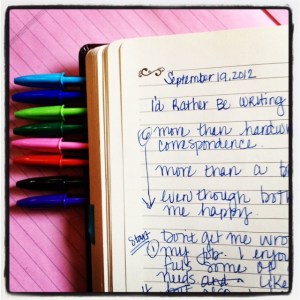 September 19, 2012
I'd Rather Be Writing
6 more than handw
correspondence.
more than a to
even though both
me happy.
Start
1 Don't get me wro
my job. I enjoy
fuls some of
needs and like
it but also